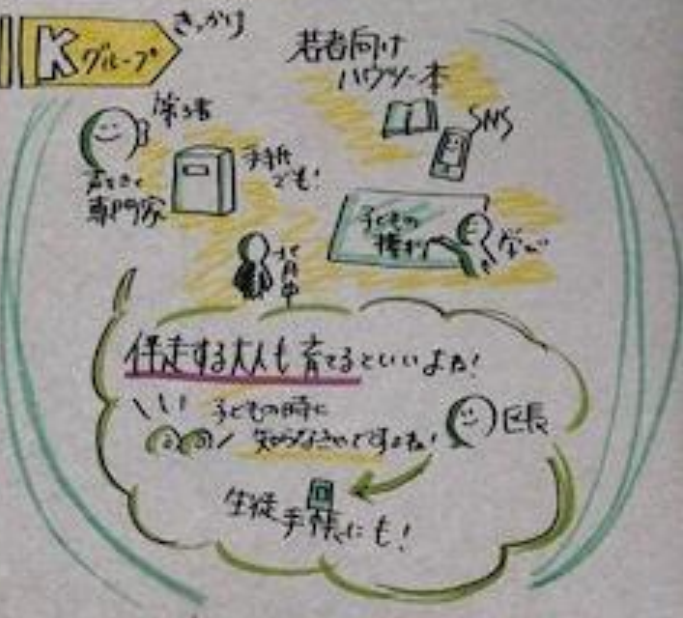 Kグループ
きっかけ
若者向け
ハウツー本
SNS
第3者
声をきく
専門家
手紙
でも!
子どもの
権利
学ぶ
背中
伴走する大人も育てるといいよね!
子どもの時に
知らなきゃですよね!
区長
生徒
手帳にも!